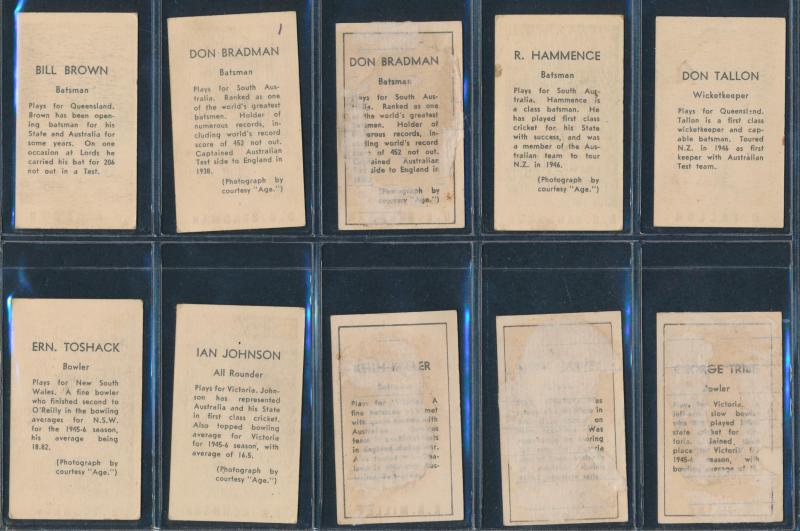 BILL BROWN
Batsman
Plays for Queensland.
Brown has been open-
ing batsman for his
State and Australia for
some years. On one
occasion at Lords he
carried his bat for 206
not out in a Test.
1
DON BRADMAN
Batsman
Plays for South Aus-
tralia. Ranked as one
of the world's greatest
batsmen. Holder of
numerous records, in-
cluding world's record
score of 452 not out.
Captained Australian
Test side to England in
1938.
(Photograph by
courtesy "Age.")
DON BRADMAN
Batsman
Plays for South Aus-
Ranked as one
the world's greatest
Holder of
records, in-
world's record
of 452 not out.
Australian
side to England in
(Photograph by
courtesy "Age.")
R. HAMMENCE
Batsman
Plays for South Aus-
tralia. Hammence is
a class batsman. He
has played first class
cricket for his State
with success, and was
a member of the Aus-
tralian team to tour
N.Z. in 1946.
(Photograph by
courtesy "Age.")
DON TALLON
Wicketkeeper
Plays for Queensland.
Tallon is a first class
wicketkeeper and cap-
able batsman. Toured
N.Z. in 1946 as first
keeper with Australian
Test team.
ERN. TOSHACK
Bowler
Plays for New South
Wales. A fine bowler
who finished second to
O'Reilly in the bowling
averages for N.S.W.
for the 1945-6 season,
his average being
18.82.
(Photograph by
courtesy "Age.")
IAN JOHNSON
All Rounder
Plays for Victoria. John-
son has represented
Australia and his State
in first class cricket.
Also topped bowling
average for Victoria
for 1945-6 season, with
average of 16.5.
(Photograph by
courtesy "Age.")
A
fine
met
with
with
in England
GEORGE
Bowler
Plays for Victoria.
slow
played
state cricket for
place for Victoria
1945-6 season, with
bowling average of